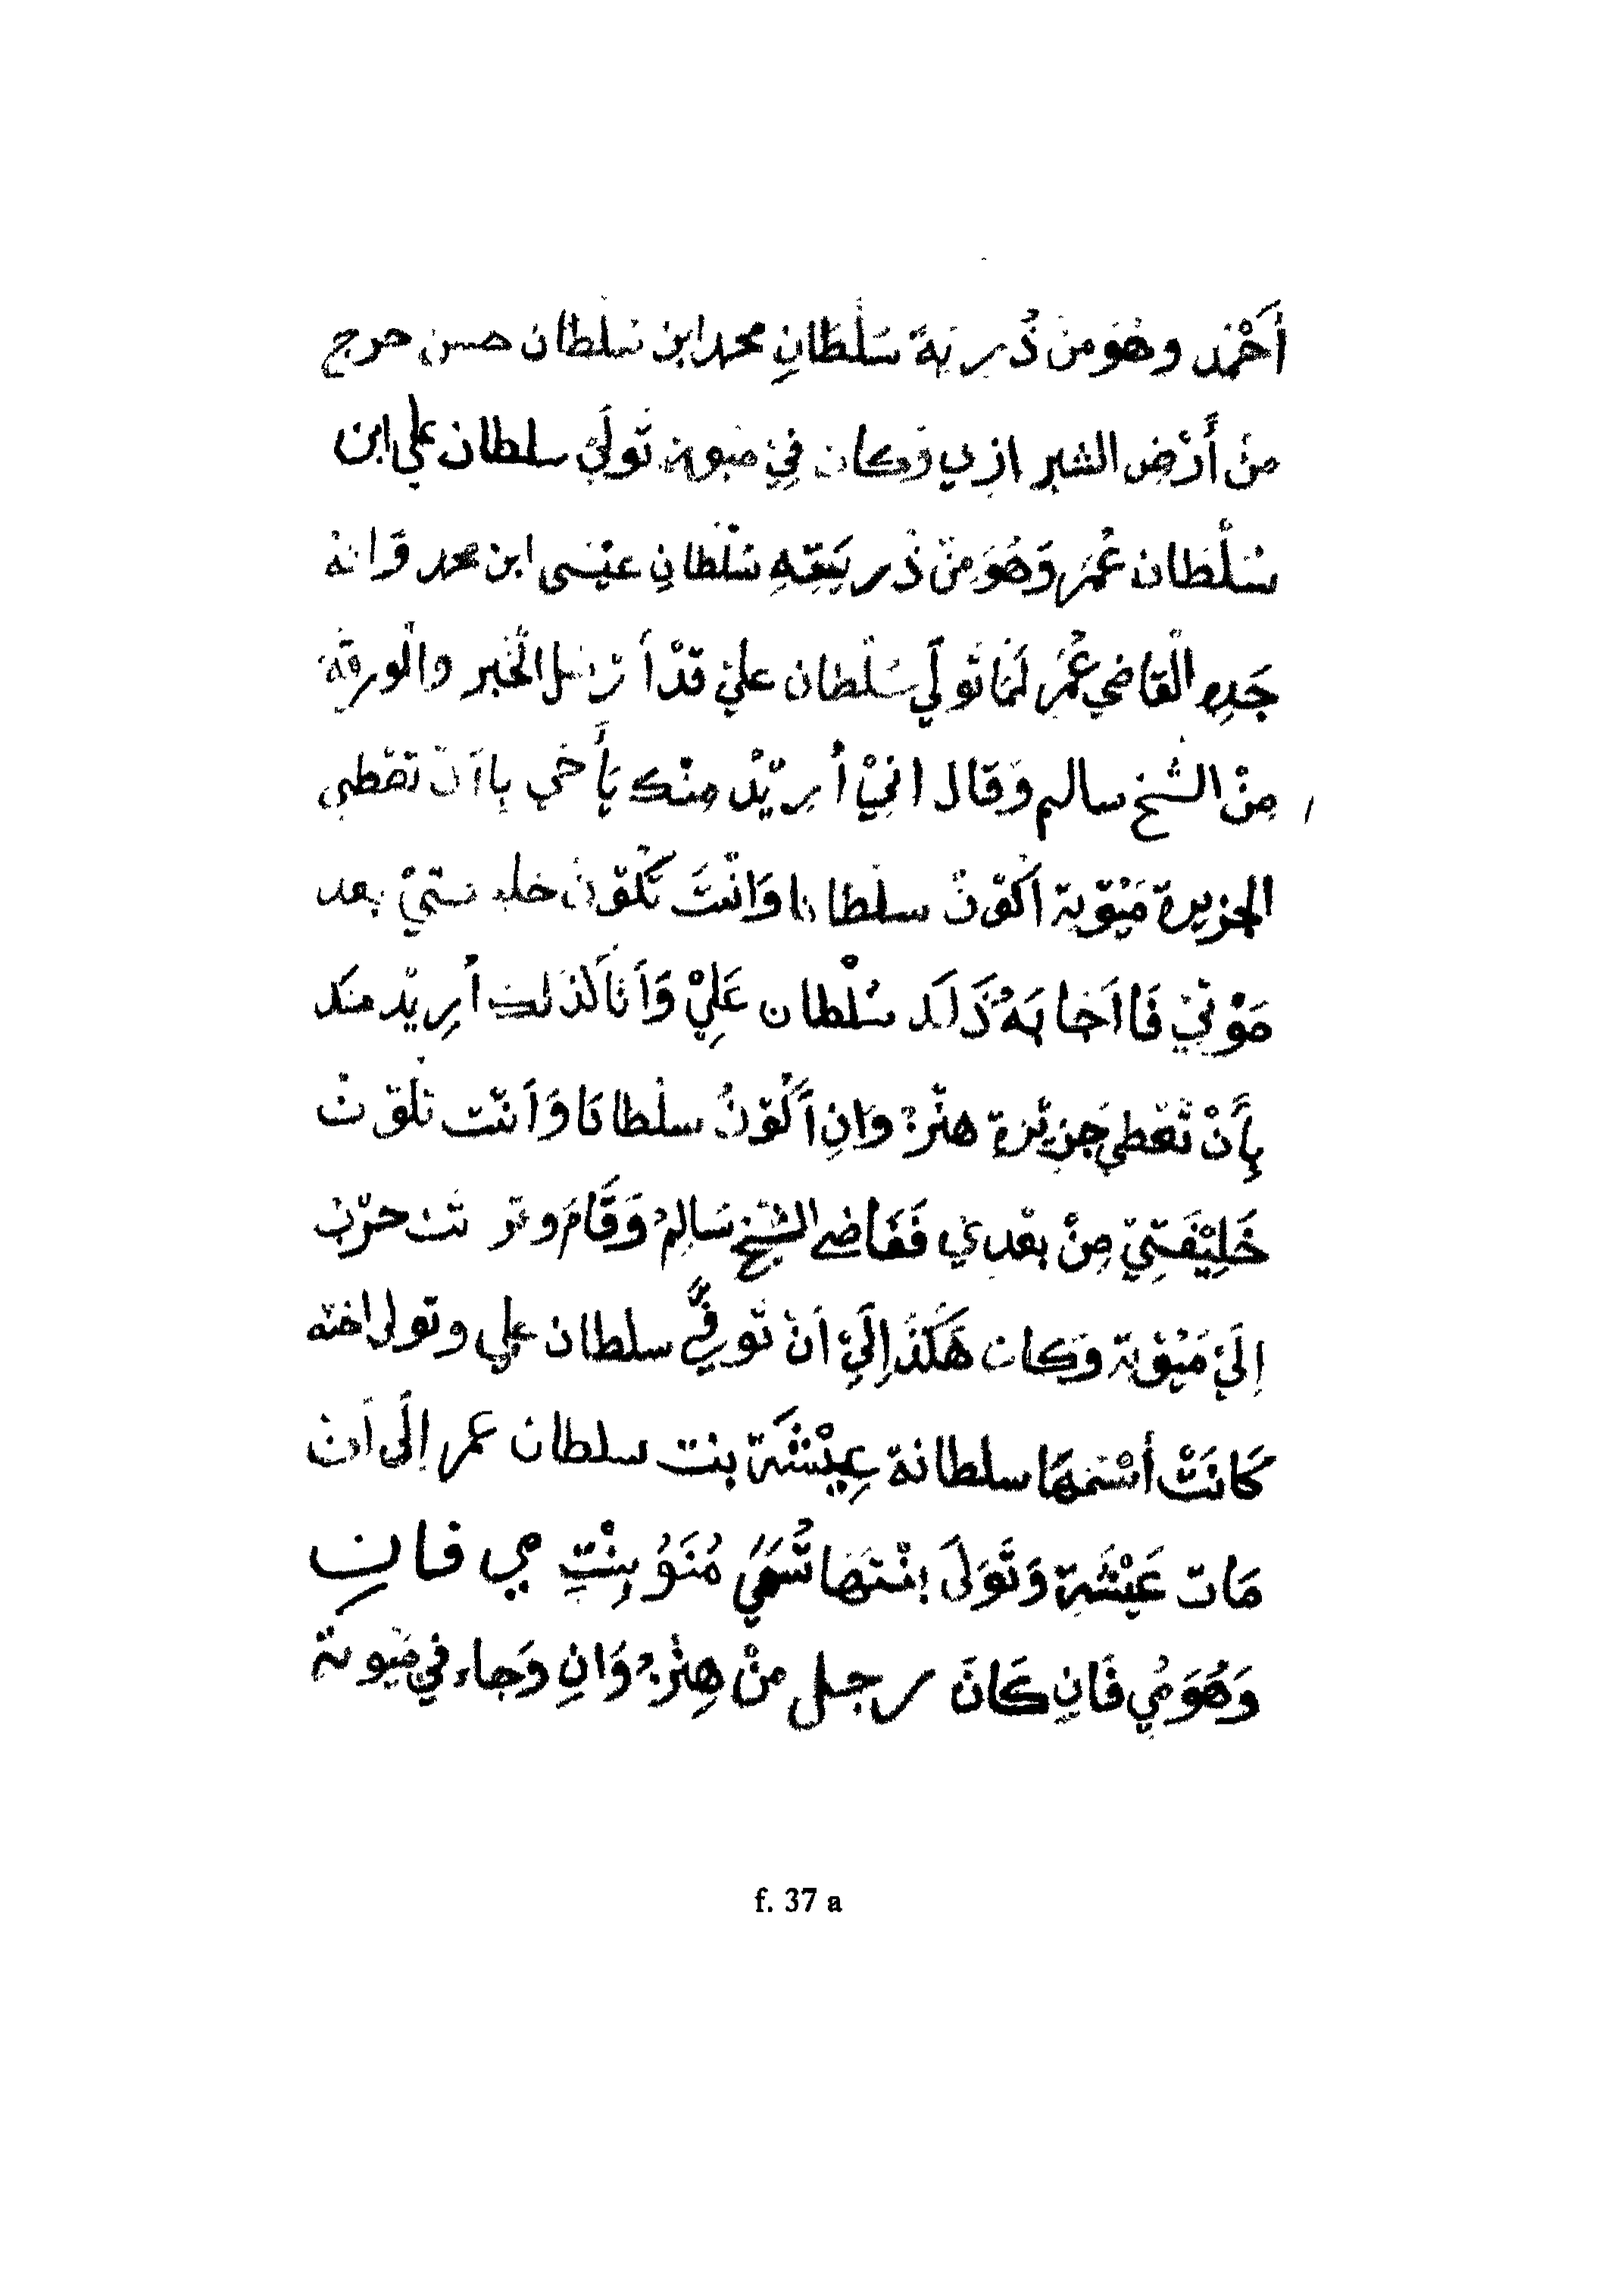 أَحْمَد وهُوَ مِنْ ذُرِيَةً سَلْطَانِ محمد ابن سُلْطان حسن خرج
مِنْ أَرْضِ الشيرازي وَكان فِيْ مَيوة تَولَيْ سلطان علي ابن
سُلْطَان عُمَر وَهُوَ مِنْ ذُرِيَتِهِ سُلْطانِ عِيْسَى ابن محمد وَّانهُ
جَدِهِ الْقاضي عُمَر لَمَّا تَولَيْ سُلْطان عليْ قدْ أَرْسَل الْخَبر والْورقة
مِنْ الشَّخ سالم وَقال انيْ أُرِيْدُ مِنْك يَأَخي بِاأَنْ تعْطِي
الجزيرة مَيْوة أَكُوْنُ سلْطانا وَانْتَ تَكُوْن خليفتيْ بعد
مَوْتِيْ فَااَجَابَهُ ذَالَك سُلْطان عَلِيْ وَأَنَا كَذَلك أُرِيْد منك
بِأَنْ تَعْطي جزيْرة هنْزُوَانِ أَكُوْنُ سلْطانَا وَأَنْت تَكُوْنْ
خَلِيْفَتِيْ مِنْ بعْدِيْ فَقَاضى الشّيخ سَالِمُ وَقَامَ وترتت حرْب
اِلَيْ مَيْوْة وَكان هَكَذَ اِلَيْ اَنْ تَوفيَّ سلطان علي وتولى اخته
كَانَتْ أسْمَهَا سلطانة عِيْشَة بنت سلطان عمر اِلَى اَنْ
مَات عَيْشَة وَتَوَلَى اِبْنَتهَا تُسَمَيْ مُنَوُ بِنْتِ مي فانِ
وَهُوَ مُي فَانِ كَانَ رجل مِنْ هِنْزُوَانِ وَجاء في مَيوة
f. 37 a